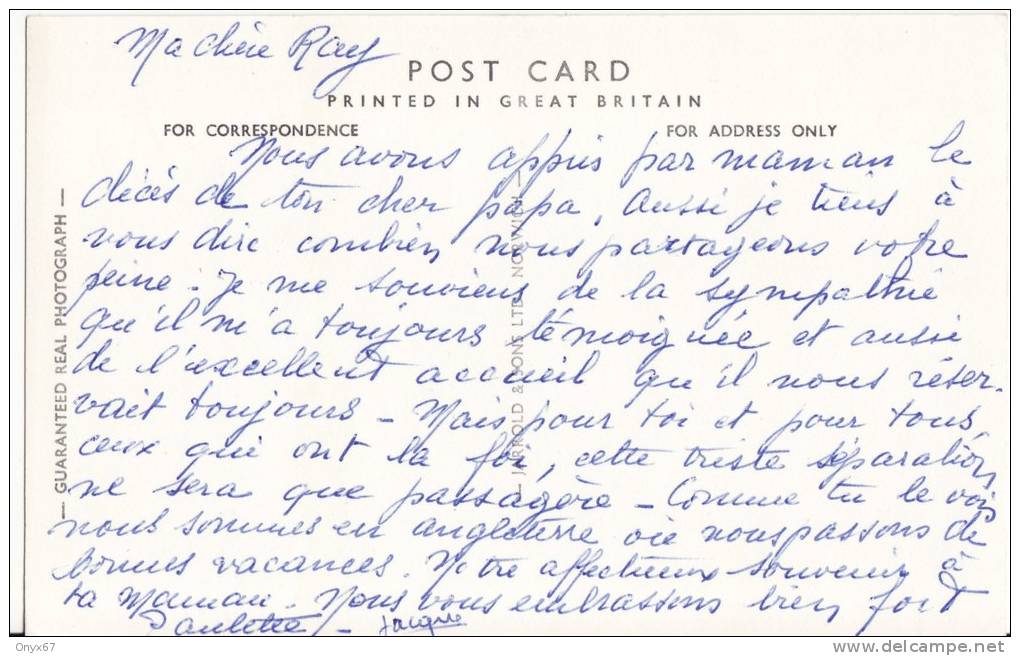 Ma chère Ray
POST CARD
PRINTED IN GREAT BRITAIN
FOR CORRESPONDENCE
FOR ADDRESS ONLY
Nous avons appris par maman le
décés de ton cher papa, aussi je tiens à
vous dire combien nous partageons votre
peine. Je me souviens de la sympathie
qu'il m'a toujours témoignée et aussi
de l'excellent accueil qu'il nous réser-
vait toujours - Mais pour toi et pour tous
ceux qui ont la foi, cette triste séparation
ne sera que passagère - Comme tu le vois
nous sommes en angleterre où nous passons de
bonnes vacances. Notre affectueux souvenir à
ta Maman. Nous vous embrassons bien fort
Paulette - Jacques
— GUARANTEED REAL PHOTOGRAPH —
— JARROLD & SONS LTD. NORWICH —
Onyx67
www.delcampe.net